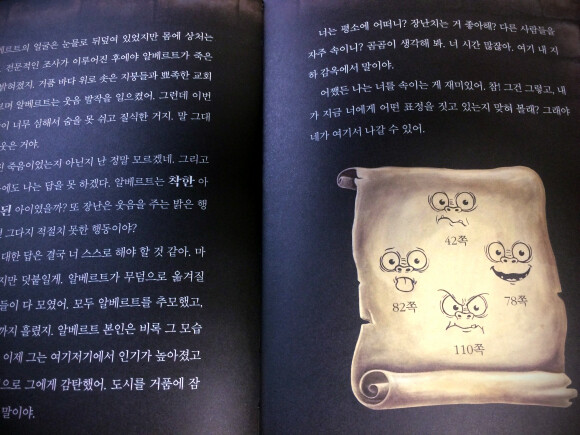 베르트의 얼굴은 눈물로 뒤덮여 있었지만 몸에 상처는
전문적인 조사가 이루어진 후에야 알베르트가 죽은
밝혀졌지. 거품 바다 위로 솟은 지붕들과 뾰족한 교회
며 알베르트는 웃음 발작을 일으켰어. 그런데 이번
이 너무 심해서 숨을 못 쉬고 질식한 거지. 말 그대
웃은 거야.
죽음이었는지 아닌지 난 정말 모르겠네. 그리고
에도 나는 답을 못 하겠다. 알베르트는 착한 아
된 아이였을까? 또 장난은 웃음을 주는 밝은 행
그다지 적절치 못한 행동이야?
대한 답은 결국 너 스스로 해야 할 것 같아. 마
지만 덧붙일게. 알베르트가 무덤으로 옮겨질
들이 다 모였어. 모두 알베르트를 추모했고,
까지 흘렸지. 알베르트 본인은 비록 그 모습
이제 그는 여기저기에서 인기가 높아졌고
으로 그에게 감탄했어. 도시를 거품에 잠
말이야.
너는 평소에 어떠니? 장난치는 거 좋아해? 다른 사람들을
자주 속이니? 곰곰이 생각해 봐. 너 시간 많잖아. 여기 내 지
하 감옥에서 말이야.
어쨌든 나는 너를 속이는 게 재미있어. 참! 그건 그렇고, 내
가 지금 너에게 어떤 표정을 짓고 있는지 맞혀 볼래? 그래야
네가 여기서 나갈 수 있어.
42쪽
82쪽
78쪽
110쪽